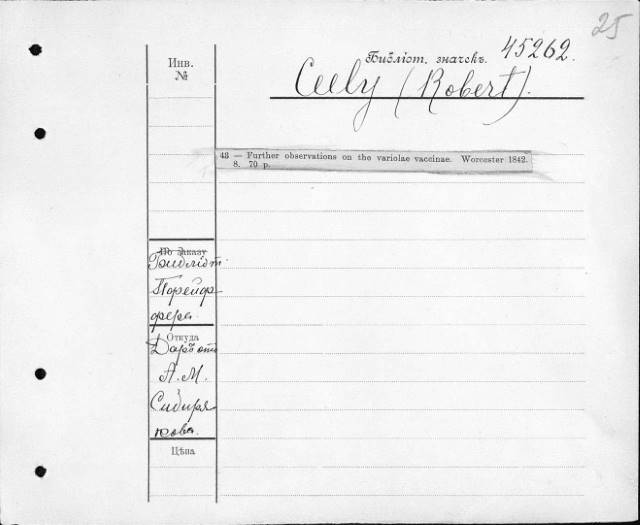 25
Инв.
№
Библіот. значекъ. 45262.
Ceely (Robert).
43 — Further observations on the variolae vaccinae. Worcester 1842.
8. 70 p.
По заказу
Библіот.
Порейф
фера
Откуда
Даръ отъ
А. М.
Сибиря
кова.
Цѣна